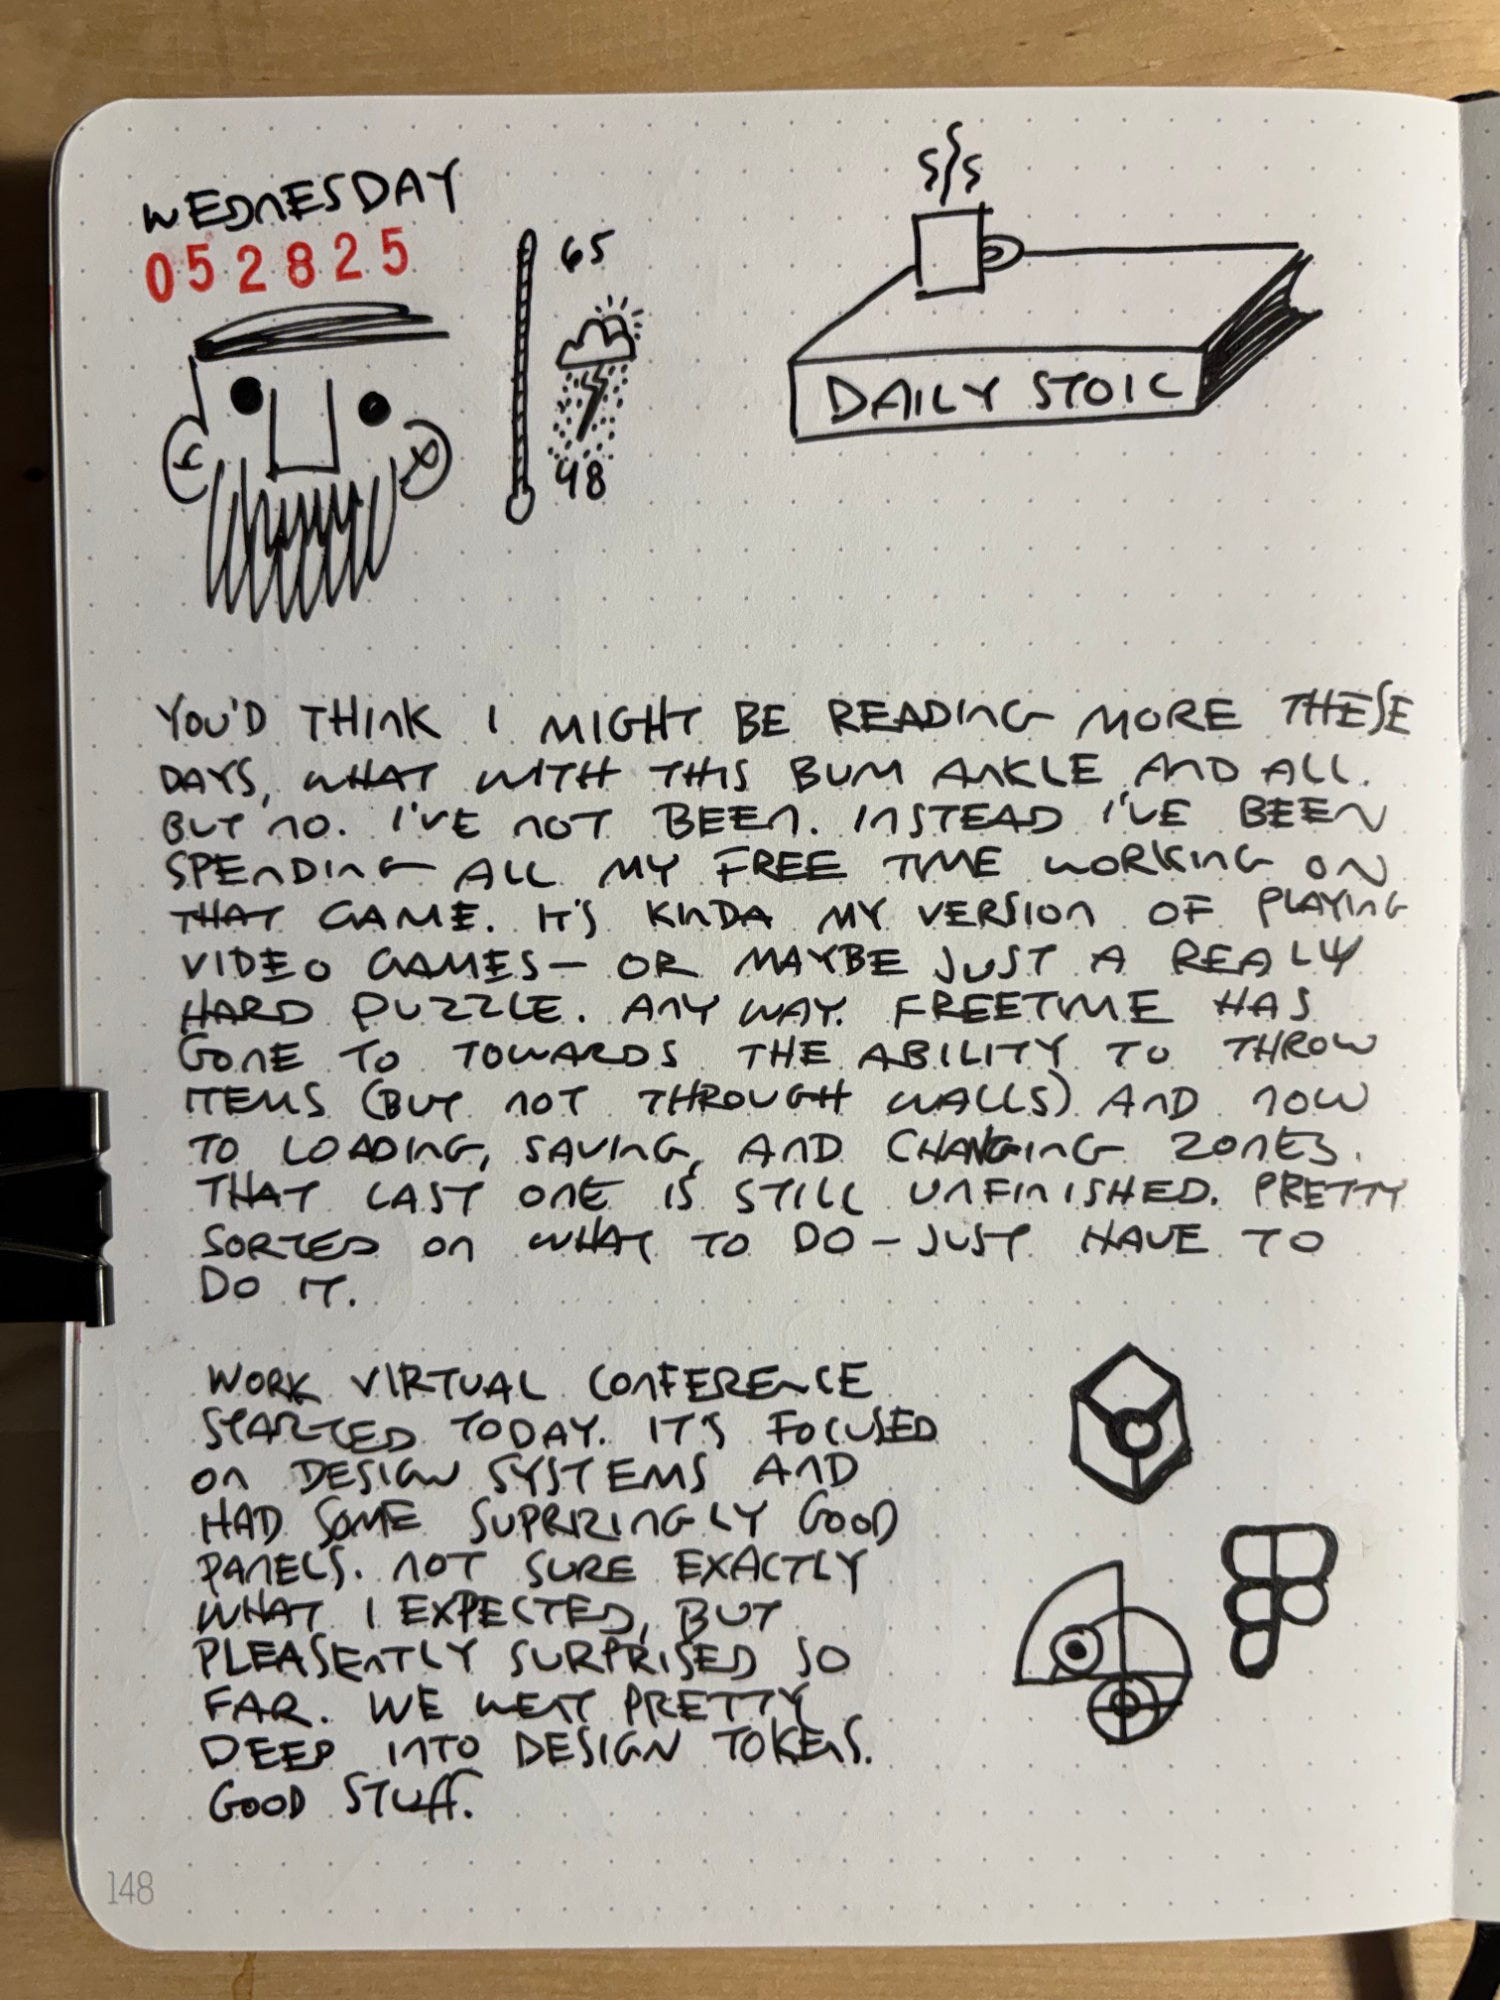 WEDNESDAY
052825
65
48
DAILY STOIC
YOU'D THINK I MIGHT BE READING MORE THESE
DAYS, WHAT WITH THIS BUM ANKLE AND ALL.
BUT NO. I'VE NOT BEEN. INSTEAD I'VE BEEN
SPENDING ALL MY FREE TIME WORKING ON
THAT GAME. IT'S KINDA MY VERSION OF PLAYING
VIDEO GAMES— OR MAYBE JUST A REALLY
HARD PUZZLE. ANY WAY. FREETIME HAS
GONE TO TOWARDS THE ABILITY TO THROW
ITEMS (BUT NOT THROUGH WALLS) AND NOW
TO LOADING, SAVING, AND CHANGING ZONES.
THAT LAST ONE IS STILL UNFINISHED. PRETTY
SORTED ON WHAT TO DO – JUST HAVE TO
DO IT.
WORK VIRTUAL CONFERENCE
STARTED TODAY. IT'S FOCUSED
ON DESIGN SYSTEMS AND
HAD SOME SUPRIZINGLY GOOD
PANELS. NOT SURE EXACTLY
WHAT I EXPECTED, BUT
PLEASENTLY SURPRISED SO
FAR. WE WENT PRETTY
DEEP INTO DESIGN TOKENS.
GOOD STUFF.
148